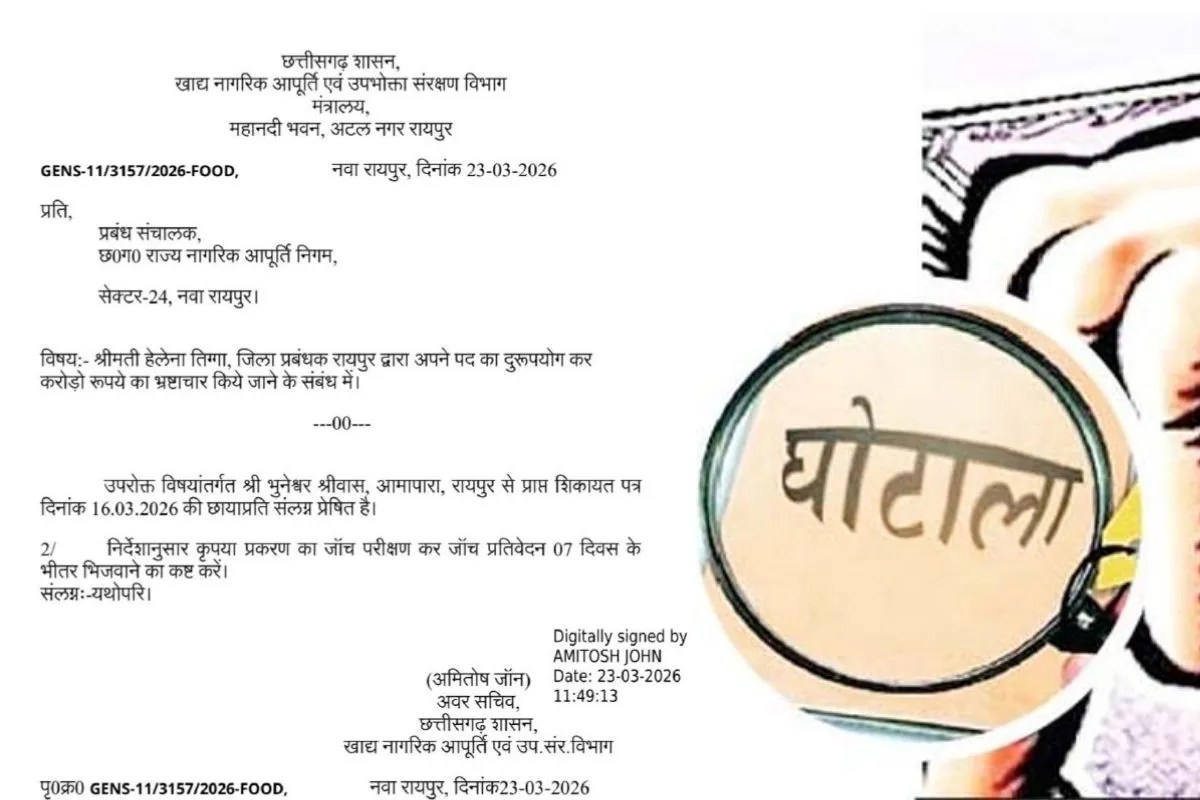 छत्तीसगढ़ शासन,
खाद्य नागरिक आपूर्ति एवं उपभोक्ता संरक्षण विभाग
मंत्रालय,
महानदी भवन, अटल नगर रायपुर
GENS-11/3157/2026-FOOD, नवा रायपुर, दिनांक 23-03-2026
प्रति,
प्रबंध संचालक,
छ0ग0 राज्य नागरिक आपूर्ति निगम,
सेक्टर-24, नवा रायपुर।
विषय:- श्रीमती हेलेना तिग्गा, जिला प्रबंधक रायपुर द्वारा अपने पद का दुरूपयोग कर
करोड़ो रूपये का भ्रष्टाचार किये जाने के संबंध में।
---00---
उपरोक्त विषयांतर्गत श्री भुनेश्वर श्रीवास, आमापारा, रायपुर से प्राप्त शिकायत पत्र
दिनांक 16.03.2026 की छायाप्रति संलग्न प्रेषित है।
2/ निर्देशानुसार कृपया प्रकरण का जॉच परीक्षण कर जॉच प्रतिवेदन 07 दिवस के
भीतर भिजवाने का कष्ट करें।
संलग्नः-यथोपरि।
Digitally signed by
AMITOSH JOHN
Date: 23-03-2026
11:49:13
(अमितोष जॉन)
अवर सचिव,
छत्तीसगढ़ शासन,
खाद्य नागरिक आपूर्ति एवं उप.संर.विभाग
पृ0क्र0 GENS-11/3157/2026-FOOD, नवा रायपुर, दिनांक23-03-2026
घोटाला